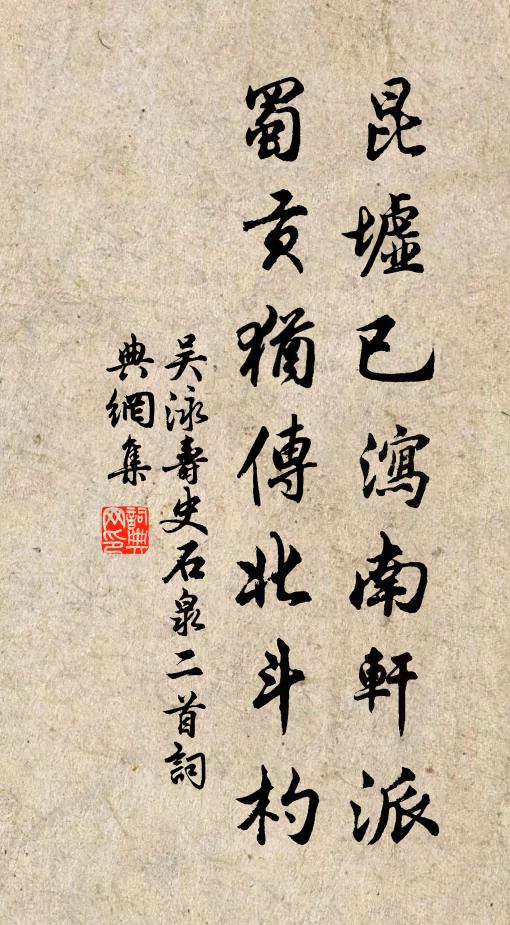 昆墟已瀉南軒派
蜀貢猶傳北斗杓
吴泳壽史石泉二首詞
典網集
詞典網印